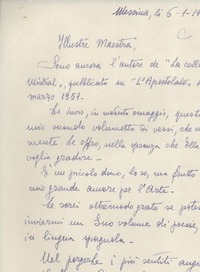 Messina, li 6-1-19
Illustre Maestra,
Sono ancora l'autore de "La colle
Mistral", pubblicato su "L'Apostolato"
marzo 1951.
Le invio, in modesto omaggio, quest
mio secondo volumetto di versi, che
mente Le offro, nella speranza che Ella
voglia gradire.
E' un piccolo dono, lo so, ma frutto
mio grande amore per l'Arte.
Le sarei oltremodo grato se potes
inviarmi un Suo volume di poesie,
in lingua spagnola.
Nel porgerle i più sentiti augu